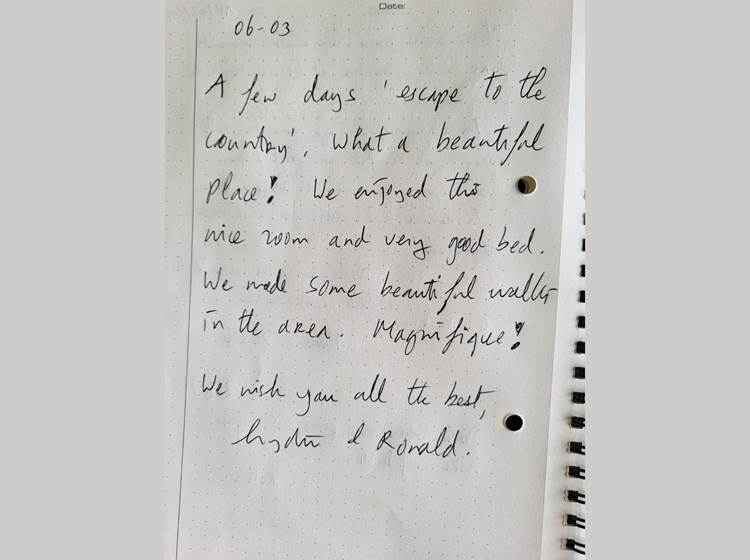 Date:
06-03
A few days 'escape to the
country', what a beautiful
place! We enjoyed this
nice room and very good bed.
We made some beautiful walks
in the area. Magnifique!
We wish you all the best,
& Ronald.